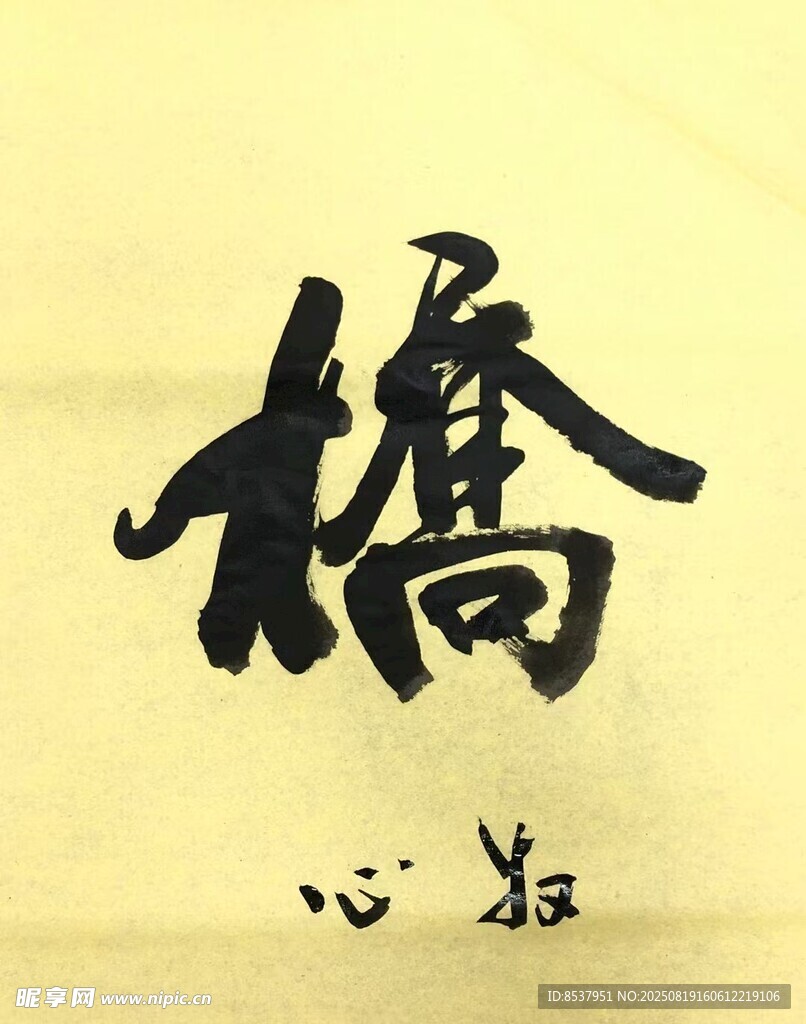 橋
心
昵享网 www.nipic.cn
ID:8537951 NO:20250819160612219106